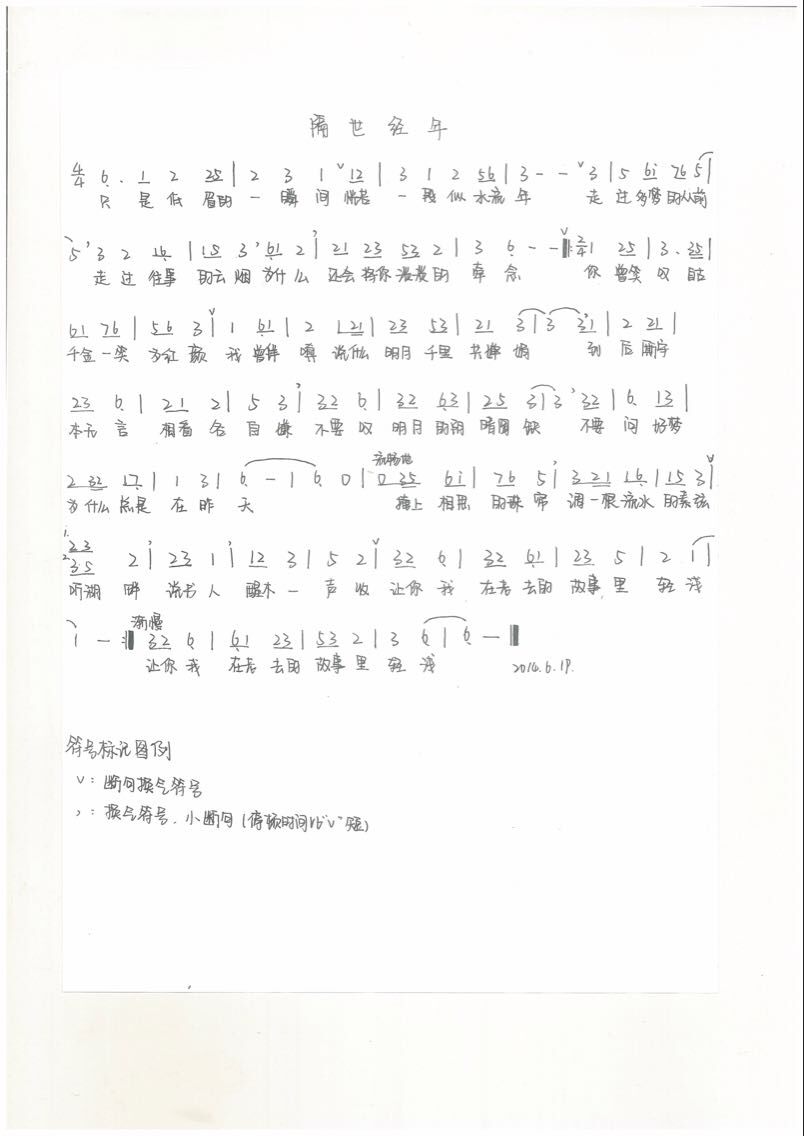 隔世经年
4/4 6. 1 2 25 | 2 3 1 ∨ 12 | 3 1 2 56 | 3 - - ∨ 3 | 5 6i 76 5 |
只 是 低 眉的 一 瞬 间 惝若 一 段 似 水流 年 走 过 多梦 的从前
5 ’ 3 2 16 | 15 3 ’ 61 2 ’ | 21 23 53 2 | 3 6 - - ∨ ‖: 2/4 1 25 | 3. 35 |
走 过 往事 的云 烟 为什 么 还会 将你 深深 的 牵 念 你 曾笑 叹
61 76 | 56 3 ∨ | 1 61 | 2 121 | 23 53 | 21 3 | 3 3 ’ 1 | 2 21 |
千金 一笑 为红 颜 我 曾伴 说什么 明月 千里 共婵 娟 到 后
23 6 | 21 2 | 5 3 ’ | 32 6 | 32 63 | 25 3 | 3 ’ 32 | 6 13 |
本无 言 相看 各 自 嫌 不要 叹 明月 的朔 晴圆 缺 不要 问 好梦
2 32 17 | 1 3 | 6 - | 6 0 | 0 35 6i | 76 5 ’ | 3 21 16 | 15 3 ∨ |
流畅地
为 什么 总是 在 昨 天 上 相思 的珠 帘 调 一根 流水 的素弦
1. 23
2. 35 2 ’ | 23 1 ’ | 12 3 | 5 2 ∨ | 32 6 | 32 61 | 23 5 | 2 1 |
听湖 畔 说书 人 醒木 一 声 收 让你 我 在老 去的 故事 里 轻 浅
1 - :‖ 32 6 | 61 23 | 53 2 | 3 6 | 6 - ‖
渐慢
让你 我 在老 去的 故事 里 轻 浅 2014.6.19.
符号标记图例
∨：断句换气符号
，：换气符号，小断句（停顿时间比“∨”短）